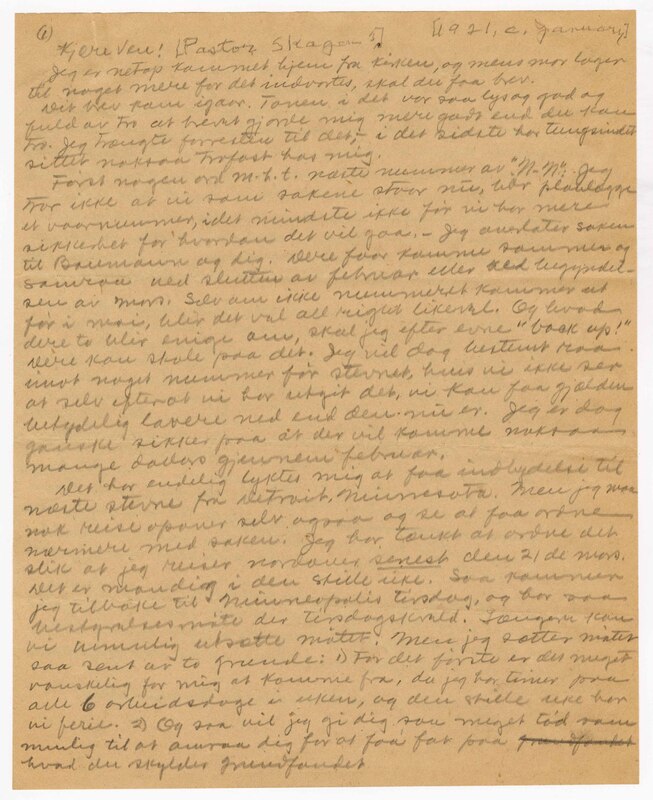 (1)
Kjere Ven! [Pastor Skagen?] [1921, c. January]
Jeg er netop kommet hjem fra kirken, og mens mor lager
til noget mere for det indvortes, skal du faa brev.
Dit brev kom igaar. Tonen i det var saa lys og god og
fuld av tro at brevet gjorde mig mere godt end du kan
tro. Jeg trængte forresten til det,- i det sidste har tungsindet
sittet noksaa trofast hos mig.
Først nogen ord m.h.t. næste nummer av "N-N". Jeg
tror ikke at vi som sakene staar nu, bør planlægge
et vaarnummer, i det mindste ikke før vi har mere
sikkerhet for hvordan det vil gaa. - Jeg overlater saken
til Baumann og dig. Dere faar komme sammen og
samraa ved slutten av februar eller ved begyndel-
sen av mars. Selv om ikke nummeret kommer ut
før i mai, blir det vel all right likevel. Og hvad
dere to blir enige om, skal jeg efter evne "back up!"
Dere kan stole paa det. Jeg vil dog bestemt raa
imot noget nummer før stevnet, hvis vi ikke ser
at selv efterat vi har utgit det, vi kan faa gjælden
betydelig lavere ned end den nu er. Jeg er dog
ganske sikker paa at der vil komme noksaa
mange dollars gjennem februar.
Det har endelig lyktes mig at faa indbydelse til
næste stevne fra Detroit, Minnesota. Men jeg maa
nok reise opover selv ogsaa og se at faa ordne
nærmere med saken. Jeg har tænkt at ordne det
slik at jeg reiser nordover senest den 21de mars.
Det er mandag i den stille uke. Saa kommer
jeg tilbake til Minneapolis tirsdag, og har saa
bestyrelsesmøte der tirsdagskveld. Længere kan
vi umulig utsætte møtet. Men jeg sætter møtet
saa sent av to grunde: 1) For det første er det meget
vanskelig for mig at komme fra, da jeg har timer paa
alle 6 arbeidsdage i uken, og den stille uke har
vi ferie. 2) Og saa vil jeg gi dig saa meget tid som
mulig til at anraa dig for at faa fat paa grundfondet
hvad du skylder grundfondet